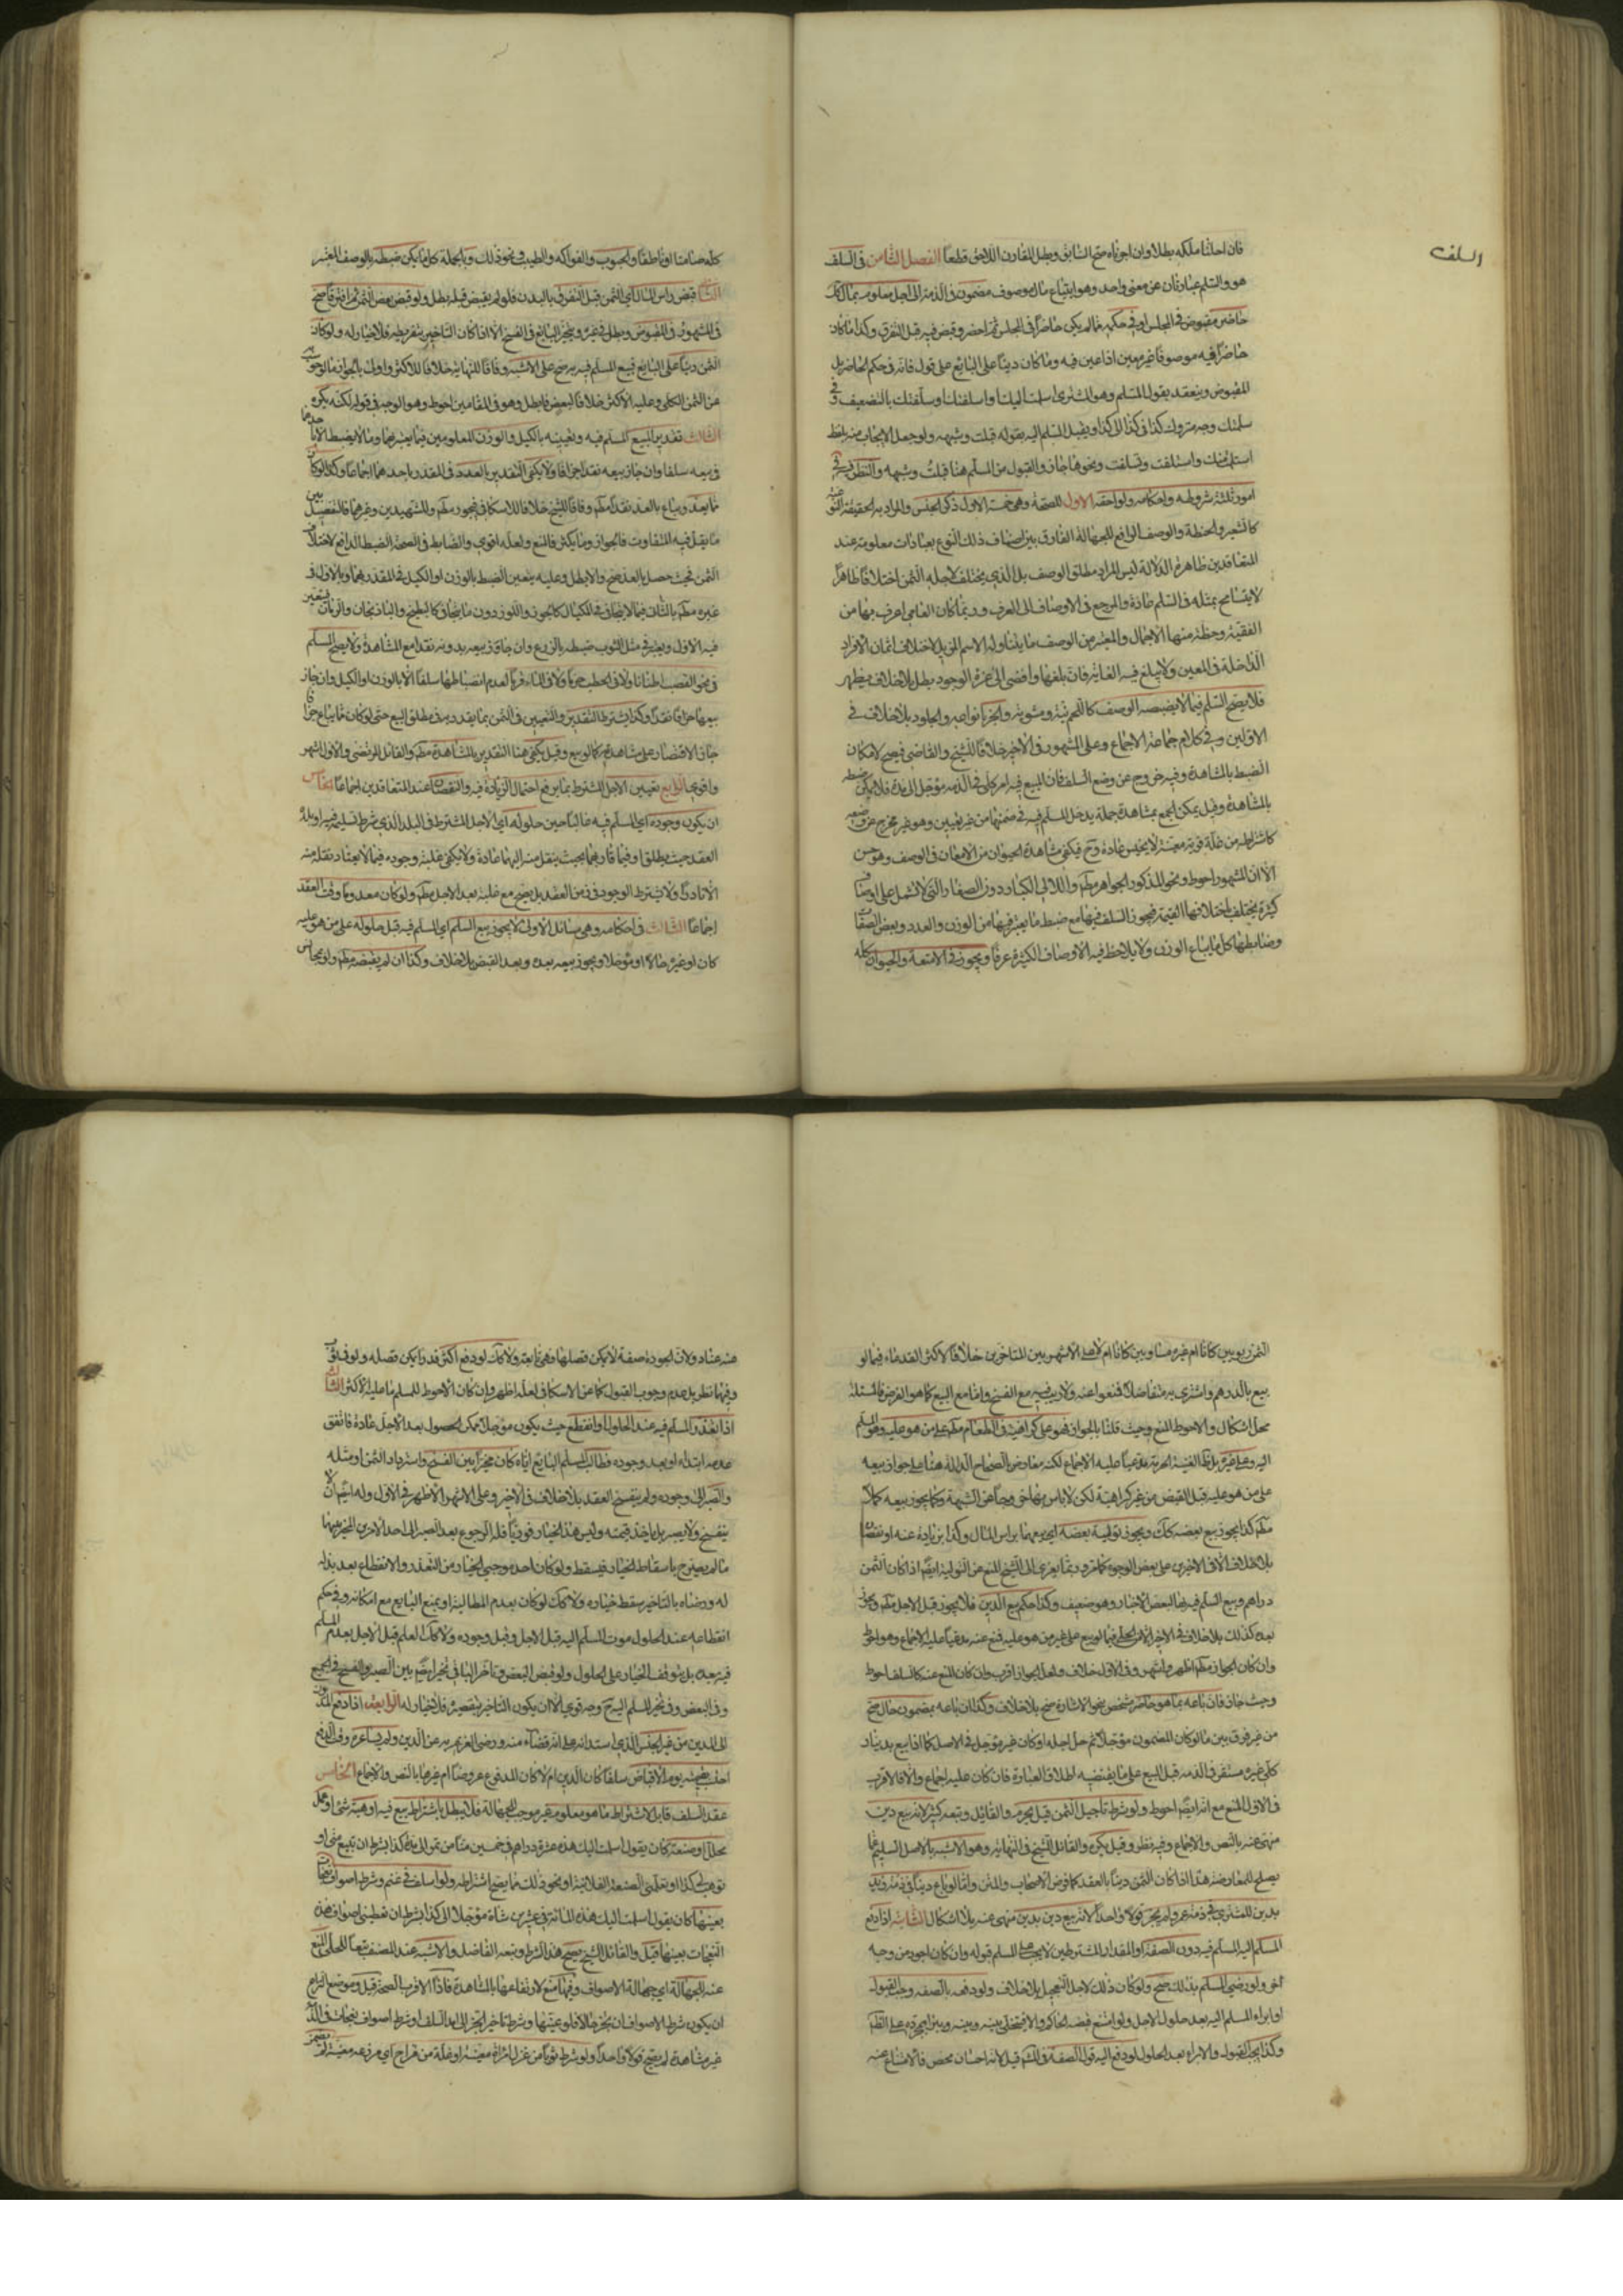 السلف
فان اجلنا ملكه بطلا وان اجزناه صح السابق وبطل المقارن اللاحق قطعاً الفصل الثامن في السلف
هو والسلم عبارتان عن معنى واحد وهو ابتياع مال موصوف مضمون في الذمة الى اجل معلوم بمال
حاضر مقبوض في المجلس او في حكمه فما لم يكن حاضراً في المجلس ثم احضر وقبض فيه قبل التفرق وكذا ما كان
حاضراً فيه موصوفاً غير معين اذا عين فيه وما كان ديناً على البائع على قول فانه في حكم الحاضر بل
المقبوض وينعقد بقول المسلم وهو المشتري اسلمت اليك او اسلفتك او سلفتك بالتضعيف وفي
سلمتك وجه متروك كذا في كذا الى كذا ويقبل المسلم اليه بقوله قبلت وشبهه ولو جعل الايجاب منه بلفظ
استلمت منك واستلفت وتسلفت ونحوها جاز والقبول من المسلم هنا قبلت وشبهه والنظر فيه في
امور ثلثة شروطه واحكامه ولواحقه الاول للصحة وهي خمسة الاول ذكر الجنس والمراد به الحقيقة النوعية
كالشعير والحنطة والوصف الرافع للجهالة الفارق بين اصناف ذلك النوع بعبارات معلومة عند
المتعاقدين ظاهرة الدلالة ليس المراد مطلق الوصف بل الذي يختلف لاجله الثمن اختلافاً ظاهراً
لا يتسامح بمثله في السلم عادة والمرجع في الاوصاف الى العرف وربما كان العامي اعرف بها من
الفقيه وحظه منها الاجمال والمعتبر من الوصف ما يتناوله الاسم المزيل لاختلاف اثمان الافراد
الداخلة في المعين ولا يبلغ فيه الغاية فان بلغها وافضى الى عزة الوجود بطل بلا خلاف يظهر
فلا يصح السلم فيما لا يضبطه الوصف كاللحم نيه ومشويه والخبز بانواعه والجلود بلا خلاف في
الاولين وفي كلام جماعة الاجماع وعلى المشهور في الاخير خلافاً للشيخ والقاضي فيصح لامكان
الضبط بالمشاهدة وفيه خروج عن وضع السلف فان المبيع فيه امر كلي في الذمة مؤجل الى مدة فلا يمكن ضبطه
بالمشاهدة وقيل يمكن الجمع بمشاهدة جملة يدخل المسلم فيه في ضمنها من غير تعيين وهو غير مخرج عن وضعه
كاشتراطه من غلة قرية معينة لا يخيس عادة وح فيكفي مشاهدة الحيوان من الامعان في الوصف وهو حسن
الا ان المشهور احوط ونحو المذكور الجواهر مطم واللالي الكبار دون الصغار والتي لا تشمل على اوصاف
كثيرة يختلف باختلافها القيمة فيجوز السلف فيها مع ضبط ما يعتبر فيها من الوزن والعدد وبعض الصفات
وضابطها كل ما يباع بالوزن ولا يلاحظ فيه الاوصاف الكثيرة عرفاً ويجوز في الامتعة والحيوان كله
كله صامتا او ناطقاً والحبوب والفواكه والطيب ونحو ذلك وبالجملة كل ما يمكن ضبطه بالوصف المعتبر
الثاني قبض راس المال اي الثمن قبل التفرق بالبدن فلو لم يقبض قبله بطل ولو قبض بعض الثمن ثم افترقا صح
في المشهور في المقبوض وبطل في غيره ويتخير البايع في الفسخ الا اذا كان التاخير بتفريطه فلا خيار له ولو كان
الثمن ديناً على البايع فبيع المسلم فيه به صح على الاشبه وفاقاً للنهاية خلافاً للاكثر واولى بالجواز ما لو حوسب
عن الثمن الكلي وعليه الاكثر خلافاً لبعض فابطل وهو في المقامين احوط وهو الوجه في قوله لكنه يكره
الثالث تقدير المبيع المسلم فيه وتعيينه بالكيل والوزن المعلومين فيما يعتبر بهما وما لا يضبط الا باحدهما
في بيعه سلفا وان جاز بيعه نقداً جزافا ولا يكفي التقدير بالعدد في المقدر باحدهما اجماعا وكذا لو كان
مما يعد ويباع بالعد نقداً مطم وفاقاً للشيخ خلافاً للاسكافي فيجوز مطم وللشهيدين وغيرهما فالتفصيل بين
ما يقل فيه التفاوت فالجواز وما يكثر فالمنع ولعله اقوى والضابط في الصحة الضبط الدافع لاختلاف
الثمن فحيث حصل بالعد صح والا بطل وعليه يتعين الضبط بالوزن او الكيل في المقدر بهما وبالاول في
غيره مطم بالثاني فيما لا يتجافى في المكيال كالجوز واللوز دون ما يتجافى كالبطيخ والباذنجان والرمان فيتعين
فيه الاول ويعتبر في مثل الثوب ضبطه بالذرع وان جاز بيعه بدونه نقدا مع المشاهدة ولا يصح السلم
في نحو القصب اطنانا ولا في الحطب حزماً ولا في الماء قرباً لعدم انضباطها سلفاً الا بالوزن او الكيل وان جاز
بيعها جزافاً نقداً وكذا يشترط التقدير والتعيين في الثمن بما يقدر به في مطلق البيع حتى لو كان مما يباع جزافا
جاز الاقتصار على مشاهدته كما لو بيع وقيل يكفي هنا التقدير بالمشاهدة مطم والقائل المرتضى والاول اشهر
واقوى الرابع تعيين الاجل المشترط بما يرفع احتمال الزيادة فيه والنقصان عند المتعاقدين اجماعاً الخامس
ان يكون وجوده اي المسلم فيه غالباً حين حلوله اي الاجل المشترط في البلد الذي شرط تسليمه فيه او بلد
العقد حيث يطلق او فيما قاربهما بحيث ينقل منه اليهما عادة ولا يكفي غلبة وجوده فيما لا يعتاد نقله منه
الا نادراً ولا يشترط الوجود في زمن العقد بل يصح مع غلبته بعد الاجل مطم ولو كان معدوماً وقت العقد
اجماعاً الثالث في احكامه وهي مسائل الاولى لا يجوز بيع السلم اي المسلم فيه قبل حلوله على من هو عليه
كان او غيره حالا او مؤجلا ويجوز بيعه بعده وبعد القبض بلا خلاف وكذا ان لم يقبضه مطم ولو بمجانس
الثمن ربويين كانا ام غيره متساويين كانا ام لا على الاشهر بين المتاخرين خلافاً لاكثر القدماء فيما لو
بيع بالدرهم واشترى به متفاضلاً فمنعوا عنه ولا ريب فيه مع الفسخ واما مع البيع كما هو الفرض فالمسئلة
محل اشكال والاحوط المنع وحيث قلنا بالجواز فهو على كراهية في الطعام مطم على من هو عليه وهو المسلم
اليه وعلى غيره بل
على من هو عليه قبل القبض من غير كراهية لكن لا باس بها خروجاً عن الشبهة وكما يجوز بيعه كملاً
مطم كذا يجوز بيع بعضه كذلك ويجوز تولية بعضه اي بيعهما براس المال وكذا بزيادة عنه او نقصان
بلا خلاف الا في الاخيرين على بعض الوجوه كما مر وربما يعزى الى الشيخ المنع عن التولية ايضاً اذا كان الثمن
دراهم وبيع السلم فيه بها لبعض الاخبار وهو ضعيف وكذا حكم بيع الدين فلا يجوز قبل الاجل مطم ويجوز
بعده كذلك بلا خلاف في الاخير الا من الحلي فيما لو بيع على غير من هو عليه فمنع عنه مدعياً عليه الاجماع وهو احوط
وان كان الجواز مطم اظهر واشهر وفي الاول خلاف ولعل الجواز اقرب وان كان المنع عنه كالسلف احوط
وحيث جاز فان باعه بما هو حاضر مشخص بنحو الاشارة صح بلا خلاف وكذا ان باعه بمضمون حال صح
من غير فرق بين ما لو كان المضمون مؤجلاً ثم حل اجله او كان غير مؤجل في الاصل كما اذا بيع بدينار
كلي غير مستقر في الذمة قبل البيع على ما يقتضيه اطلاق العبارة فان كان عليه اجماع والا فالاقرب
في الاول المنع مع انه ايضاً احوط ولو شرط تاجيل الثمن قيل يحرم والقائل وتبعه كثير لانه بيع دين
منهي عنه بالنص والاجماع وفيه نظر وقيل يكره والقائل الشيخ في النهاية وهو الاشبه بالاصل السليم عما
يصلح للمعارضة هذا اذا كان الثمن ديناً بالعقد كما فرض الاصحاب والمتن واما لو باع ديناً في ذمة زيد
بدين للمشتري في ذمة عمرو لم يجز قولاً واحداً لانه بيع دين بدين منهي عنه بلا اشكال الثانية اذا دفع
المسلم اليه المسلم فيه دون الصفة او المقدار المشترطين لا يجب على المسلم قبوله وان كان اجود من وجه
آخر ولو رضي المسلم بذلك صح ولو كان ذلك لاجل التعجيل بلا خلاف ولو دفعه بالصفة وجب القبول
او ابراء المسلم اليه بعد حلول الاجل ولو امتنع قبضه الحاكم
وكذا يجب القبول والابراء بعد الحلول لو دفع اليه فوق الصفة قيل لانه احسان محض فالامتناع عنه
منه عناد ولان الجودة صفة لا يمكن فصلها وهي تابعة ولا كذلك لو دفع اكثر قدراً يمكن فصله ولو في ثوب
وفيهما نظر بل عدم وجوب القبول كما عن الاسكافي لعله اظهر وان كان الاحوط للمسلم ما عليه الاكثر الثالثة
اذا تعذر المسلم فيه عند الحلول او انقطع حيث يكون مؤجلاً ممكن الحصول بعد الاجل عادة فاتفق
عدمه ابتداء او بعد وجوده فطالب المسلم البايع اياه كان مخيراً بين الفسخ واسترداد الثمن او مثله
والصبر الى وجوده ولم ينفسخ العقد بلا خلاف في الاخير وعلى الاشهر الاظهر في الاول وله ايضاً ان لا
يفسخ ولا يصبر بل ياخذ قيمته وليس هذا الخيار فورياً فله الرجوع بعد الصبر الى احد الامرين المخير بينهما
ما لم يصرح باسقاط الخيار فيسقط ولو كان احد موجبي الخيار من التعذر والانقطاع بعد بذله
له ورضاه بالتاخير سقط خياره ولا كذلك لو كان بعدم المطالبة او بمنع البايع مع امكانه وفي حكم
انقطاعه عند الحلول موت المسلم اليه قبل الاجل وقبل وجوده ولا كذلك العلم قبل الاجل بعدم المسلم
فيه بعده بل يتوقف الخيار على الحلول ولو قبض البعض وتاخر الباقي تخير ايضاً بين الصبر والفسخ في الجميع
وفي البعض وفي تخير المسلم اليه ح وجه قوي الا ان يكون التاخير بتقصيره فلا خيار له الرابعة اذا دفع المديون
الى المدين من غير الجنس الذي استدانه على انه قضاء منه ورضي الغريم به عن الدين ولم يساعره وقت الدفع
احتسب بقيمته يوم الاقباض سلفاً كان الدين ام لا كان المدفوع عروضاً ام غيرها بالنص والاجماع الخامس
عقد السلف قابل لاشتراط ما هو معلوم غير موجب للجهالة فلا يبطل باشتراط بيع فيه او هبة شيء او عمل
محلل او صنعة كان يقول اسلمت اليك هذه عشرة دراهم في خمسين مناً من تمر الى مدة كذا بشرط ان تبيع مني او
توهب لي كذا او تعلمني الصنعة الفلانية او نحو ذلك مما يصح اشتراطه ولو اسلف في غنم وشرط اصواف نعجات
بعينها كان يقول اسلمت اليك هذه المائة في عشرين شاة مؤجلا الى كذا بشرط ان تعطيني اصواف هذه
النعجات بعينها قيل والقائل الشيخ يصح هذا الشرط وتبعه الفاضل والاشبه عند المصنف تبعاً للحلي المنع
عنه للجهالة اي جهالة الاصواف وفيها منع لارتفاعها بالمشاهدة فاذاً الاقرب الصحة قيل وموضع النزاع
ان يكون شرط الاصواف ان يجز حالا فلو عينها وشرط تاخير الجز الى امد السلف او شرط اصواف نعجات في الذمة
غير مشاهدة لم يصح قولاً واحداً ولو شرط ثوباً من غزل امراة معينة او غلة من قراح اي مزرعة معينة لم يضمن